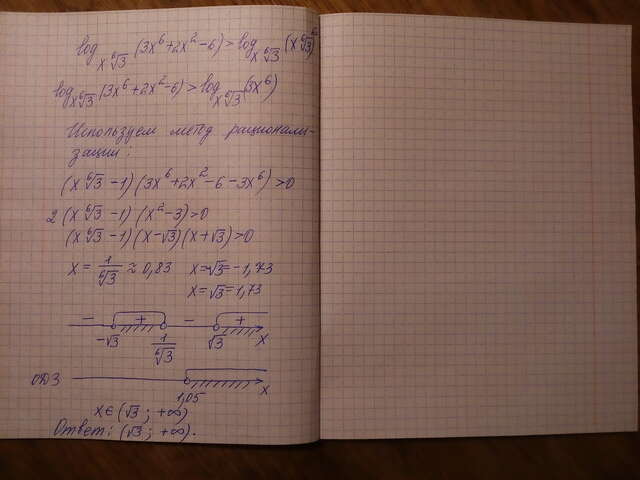 log_{x⁶√3} (3x⁶+2x²−6) > log_{x⁶√3} (x⁶√3)⁶
log_{x⁶√3} (3x⁶+2x²−6) > log_{x⁶√3} (3x⁶)
Используем метод рационали-
зации:
(x⁶√3 −1)(3x⁶+2x²−6−3x⁶) >0
2(x⁶√3 −1)(x²−3)>0
(x⁶√3 −1)(x−√3)(x+√3)>0
x = 1/⁶√3 ≈ 0,83 x=√3=−1,73
x=√3=1,73
− + − +
−√3 1/⁶√3 √3 x
ОДЗ
1,05 x
x∈(√3; +∞)
Ответ: (√3; +∞).